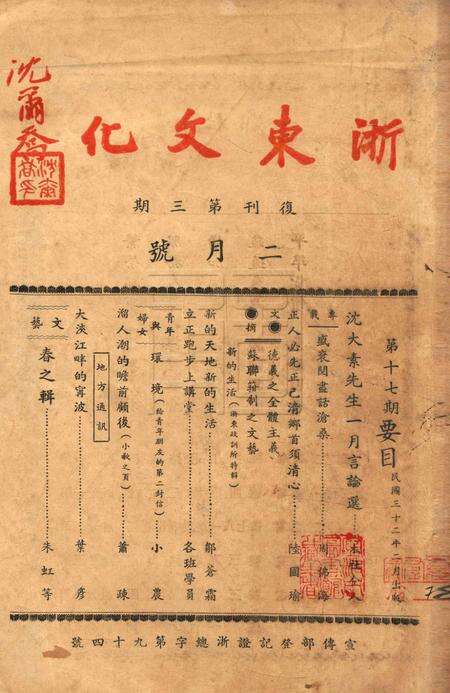 沈爾喬
浙東文化
復刊第三期
二月號
第十七期要目 民國三十二年二月出版
沈大素先生一月言論選……本社仝人
專載
盛衰閱盡話滄桑……周佛海
正人必先正己清鄉首須清心……陸國瑜
文摘
德義之全體主義
蘇聯箝制之文藝
新的生活（浙東政訓所特輯）
新的天地新的生活……鄒蒼霜
立正跑步上講堂……各班學員
青年與婦女
環境（給青年朋友的第二封信）……小農
溜人潮的瞻前顧後（小報之頁）……蕭疎
地方通訊
大淡江畔的寧波……葉彥
文藝
春之輯……朱虹等
宣傳部登記證浙總字第九十四號